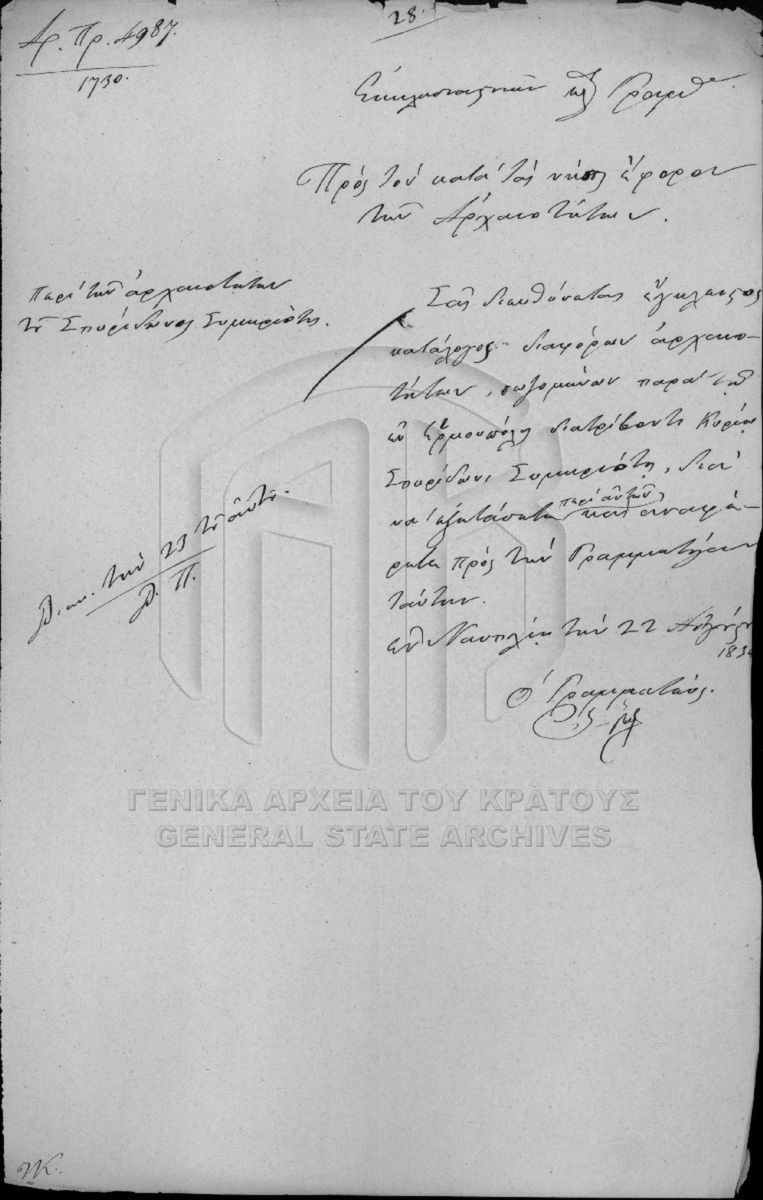 28.
Ἀρ. Πρ. 4987.
1730.
Ἐκκλησιαστικῶν κλ Γραμμ.
Πρὸς τὸν κατὰ τὰς νήσους ἔφορον
τῶν Ἀρχαιοτήτων.
Περὶ τῶν ἀρχαιοτήτων
τοῦ Σπυρίδωνος Συμηριώτη.
Σᾶς διευθύνεται ἐγκλείστως
κατάλογος διαφόρων ἀρχαιο-
τήτων, σωζομένων παρὰ τῷ
ἐν Ἑρμουπόλει διατρίβοντι Κυρίῳ
Σπυρίδωνι Συμηριώτῃ, διὰ
νὰ ἐξετάσητε περὶ αὐτῶν καὶ ἀναφέ-
ρητε πρὸς τὴν Γραμματείαν
ταύτην.
Ἐν Ναυπλίῳ τὴν 22 Αὐγούστου
1834
Ὁ Γραμματεύς.
τὴν 23 τοῦ αὐτοῦ.
Δ. Π.
ΓΕΝΙΚΑ ΑΡΧΕΙΑ ΤΟΥ ΚΡΑΤΟΥΣ
GENERAL STATE ARCHIVES